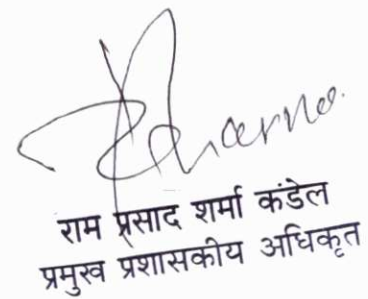 Sharma
राम प्रसाद शर्मा कंडेल
प्रमुख प्रशासकीय अधिकृत